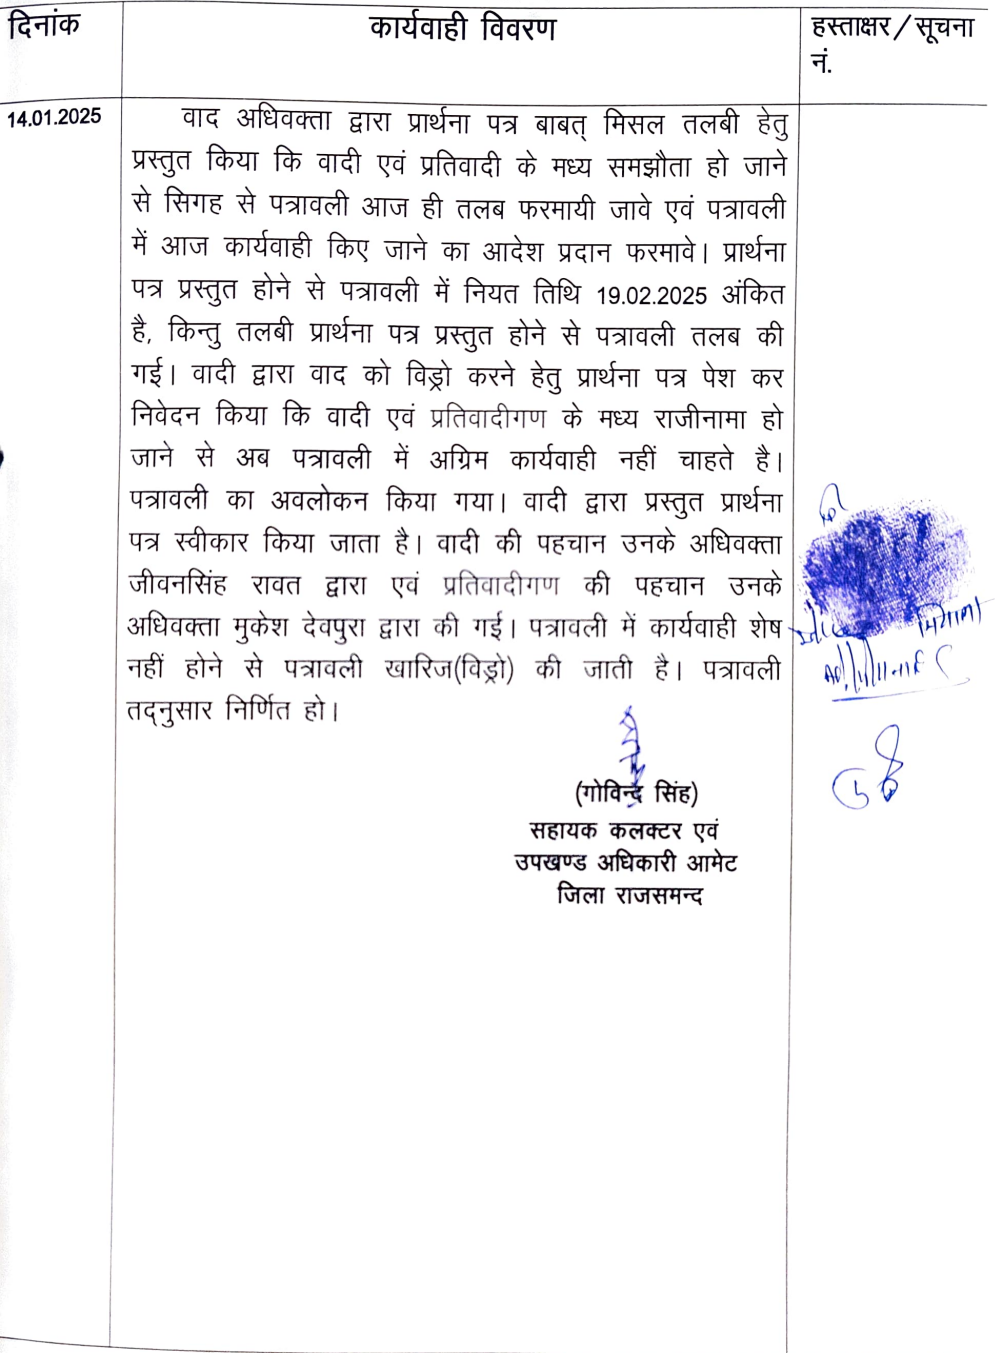 दिनांक
कार्यवाही विवरण
हस्ताक्षर/सूचना
नं.
14.01.2025
वाद अधिवक्ता द्वारा प्रार्थना पत्र बाबत् मिसल तलबी हेतु
प्रस्तुत किया कि वादी एवं प्रतिवादी के मध्य समझौता हो जाने
से सिगह से पत्रावली आज ही तलब फरमायी जावे एवं पत्रावली
में आज कार्यवाही किए जाने का आदेश प्रदान फरमावे। प्रार्थना
पत्र प्रस्तुत होने से पत्रावली में नियत तिथि 19.02.2025 अंकित
है, किन्तु तलबी प्रार्थना पत्र प्रस्तुत होने से पत्रावली तलब की
गई। वादी द्वारा वाद को विड्रो करने हेतु प्रार्थना पत्र पेश कर
निवेदन किया कि वादी एवं प्रतिवादीगण के मध्य राजीनामा हो
जाने से अब पत्रावली में अग्रिम कार्यवाही नहीं चाहते है।
पत्रावली का अवलोकन किया गया। वादी द्वारा प्रस्तुत प्रार्थना
पत्र स्वीकार किया जाता है। वादी की पहचान उनके अधिवक्ता
जीवनसिंह रावत द्वारा एवं प्रतिवादीगण की पहचान उनके
अधिवक्ता मुकेश देवपुरा द्वारा की गई। पत्रावली में कार्यवाही शेष
नहीं होने से पत्रावली खारिज(विड्रो) की जाती है। पत्रावली
तद्नुसार निर्णित हो।
(गोविन्द सिंह)
सहायक कलक्टर एवं
उपखण्ड अधिकारी आमेट
जिला राजसमन्द